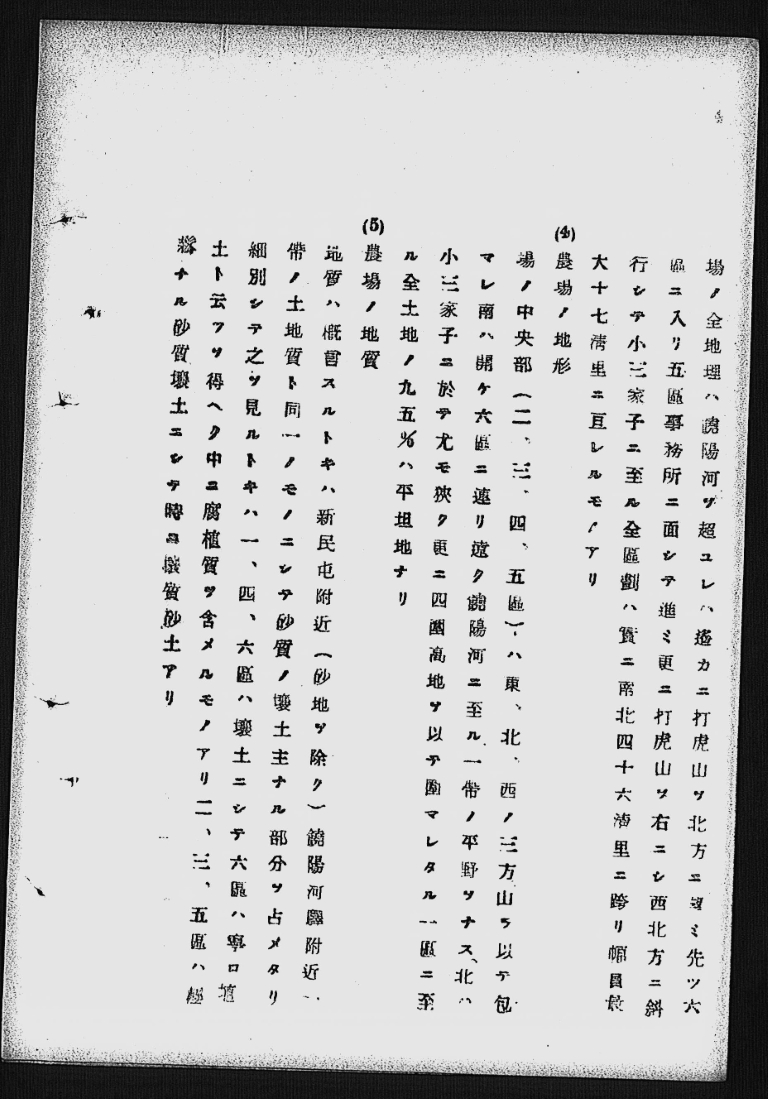 場ノ全地理ハ饒陽河ヲ超ユレハ遙カニ打虎山ヲ北方ニミ先ツ六
區ニ入リ五區事務所ニ面シテ進ミ更ニ打虎山ヲ右ニシ西北方ニ斜
行シテ小三家子ニ至ル全區劃ハ實ニ南北四十六淸里ニ跨リ幅員最
大十七淸里ニ亘レルモノアリ
(4)農場ノ地形
場ノ中央部(二、三、四、五區)ハ東、北、西ノ三方山ヲ以テ包
マレ南ハ開ケ六區ニ連リ遠ク饒陽河ニ至ル一帶ノ平野ヲナス、北ハ
小三家子ニ於テ尤モ狹ク更ニ四圍高地ヲ以テ圍マレタル一區ニ至
ル全土地ノ九五%ハ平坦地ナリ
(5)農場ノ地質
地質ハ槪言スルトキハ新民屯附近(砂地ヲ除ク)饒陽河驛附近一
帶ノ土地質ト同一ノモノニシテ砂質ノ壤土主ナル部分ヲ占メタリ
細別シテ之ヲ見ルトキハ一、四、六區ハ壤土ニシテ六區ハ寧ロ埴
土ト云フヲ得ヘク中ニ腐植質ヲ含メルモノアリ二、三、五區ハ極
ナル砂質壤土ニシテ時ニ壤質砂土アリ